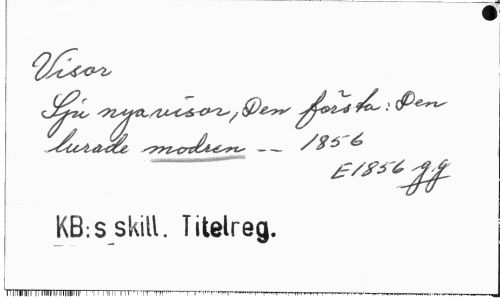 Visor
Sju nya visor, Den första: Den
lurade modren -- 1856
E1856 g.g
KB:s skill. Titelreg.